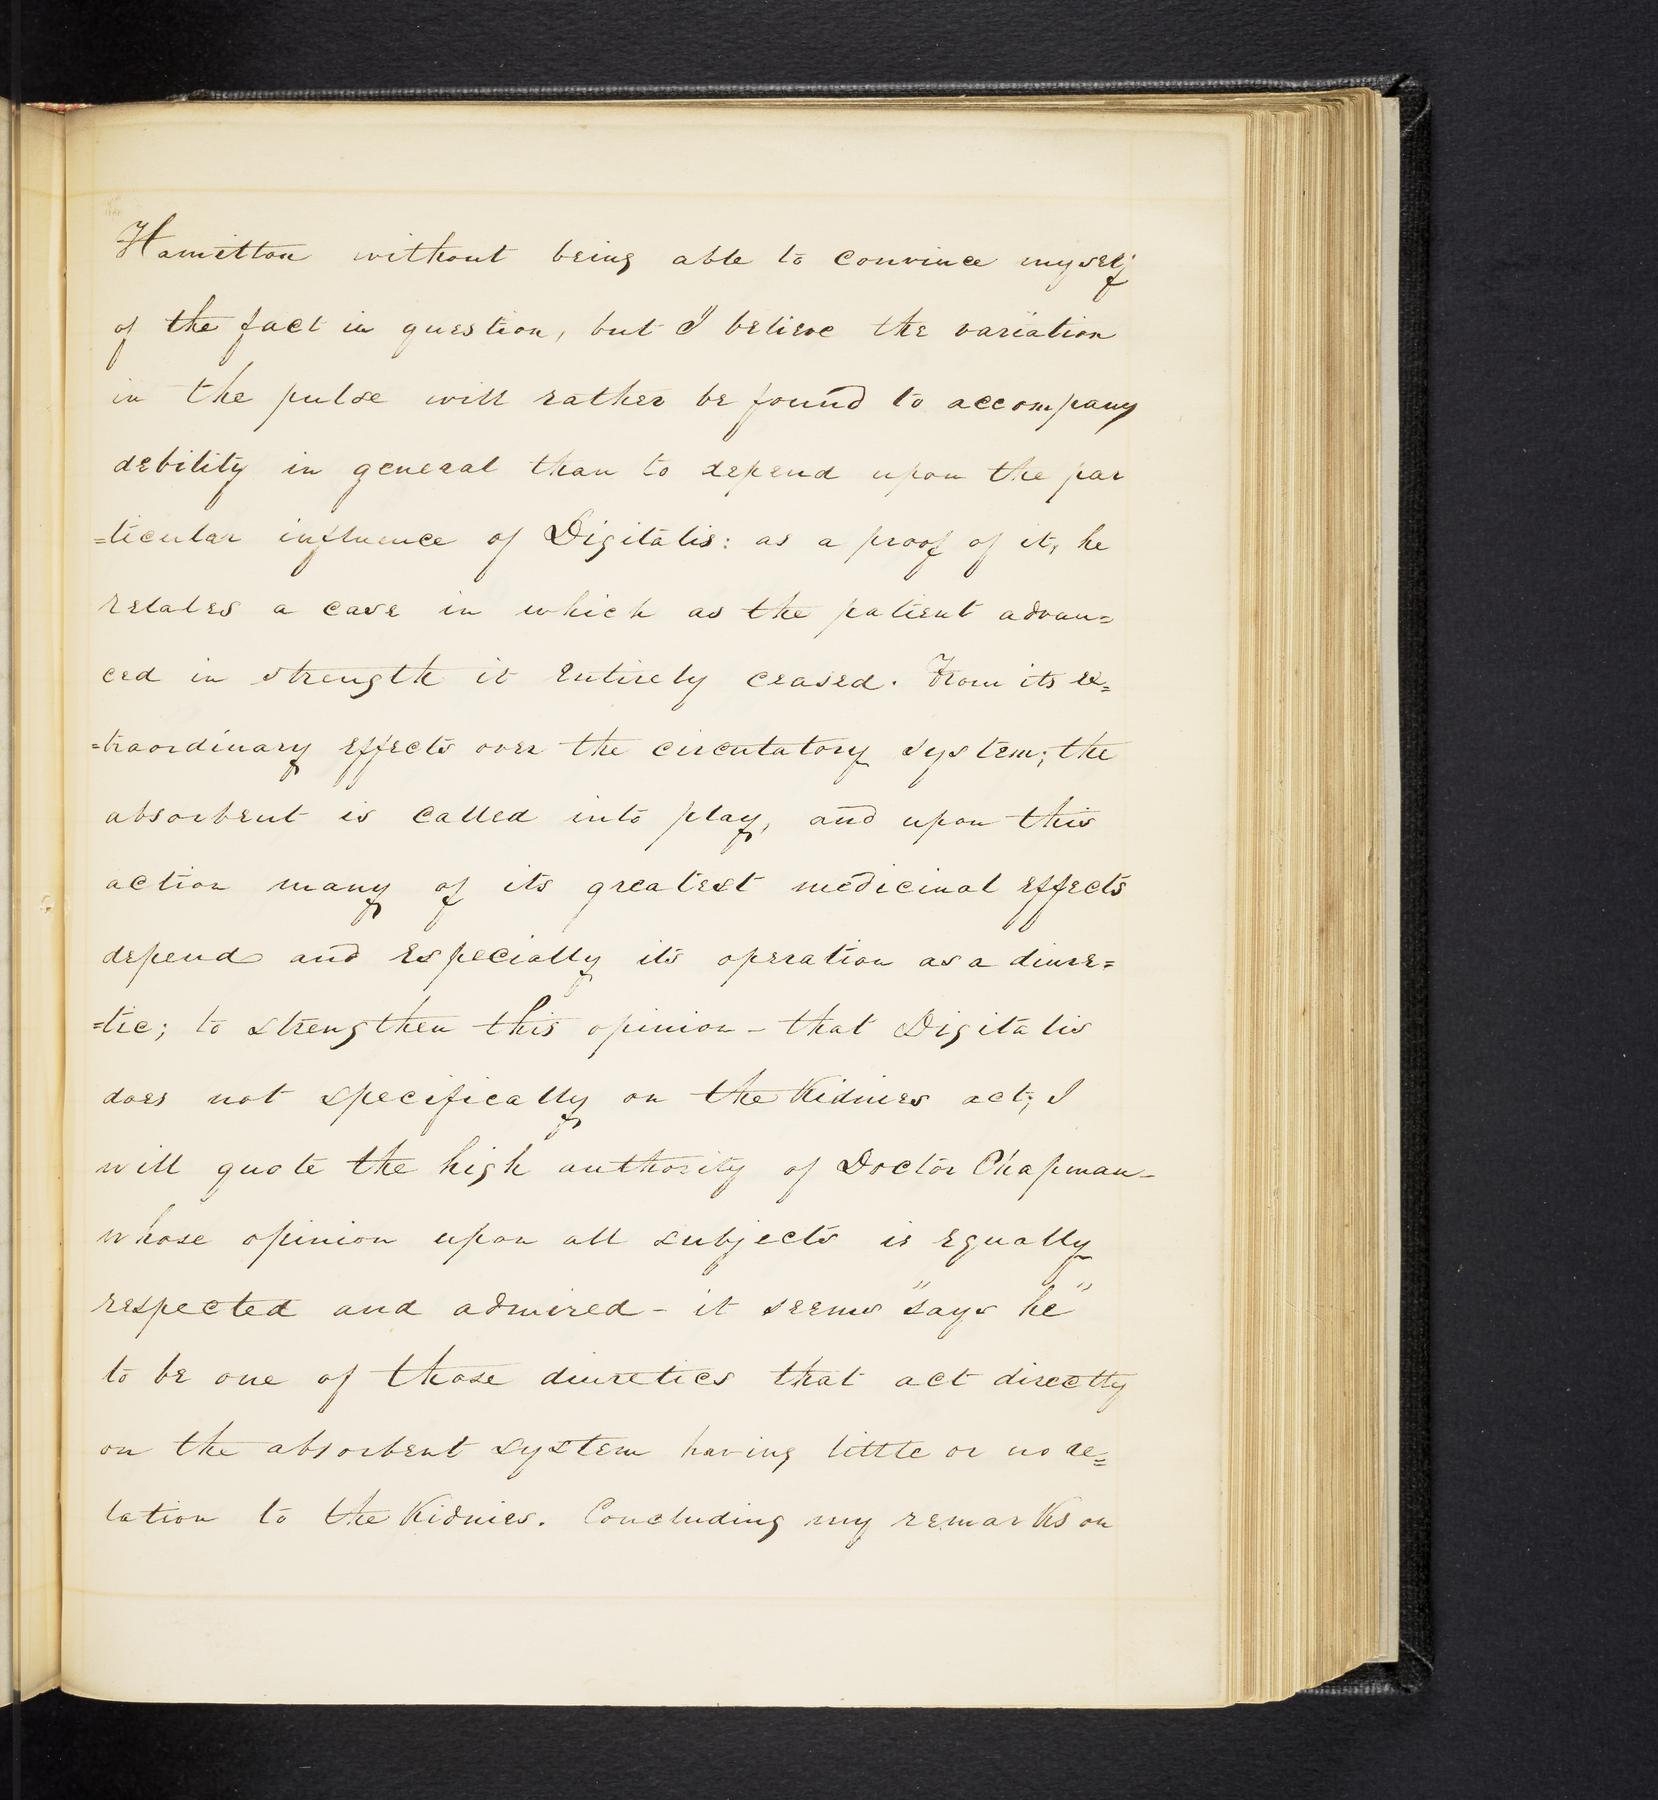 Hamilton without being able to convince myself
of the fact in question, but I believe the variation
in the pulse will rather be found to accompany
debility in general than to depend upon the par
=ticular influence of Digitalis: as a proof of it, he
relates a case in which as the patient advan=
ced in strength it entirely ceased. From its ex=
=traordinary effects over the circulatory system; the
absorbent is called into play, and upon this
action many of its greatest medicinal effects
depend and especially its operation as a diure=
=tic; to strengthen this opinion - that Digitalis
does not specifically on the Kidnies act; I
will quote the high authority of Doctor Chapman -
whose opinion upon all subjects is equally
respected and admired - it seems "says he"
to be one of those diuretics that act directly
on the absorbent system having little or no re=
lation to the Kidnies. Concluding my remarks on